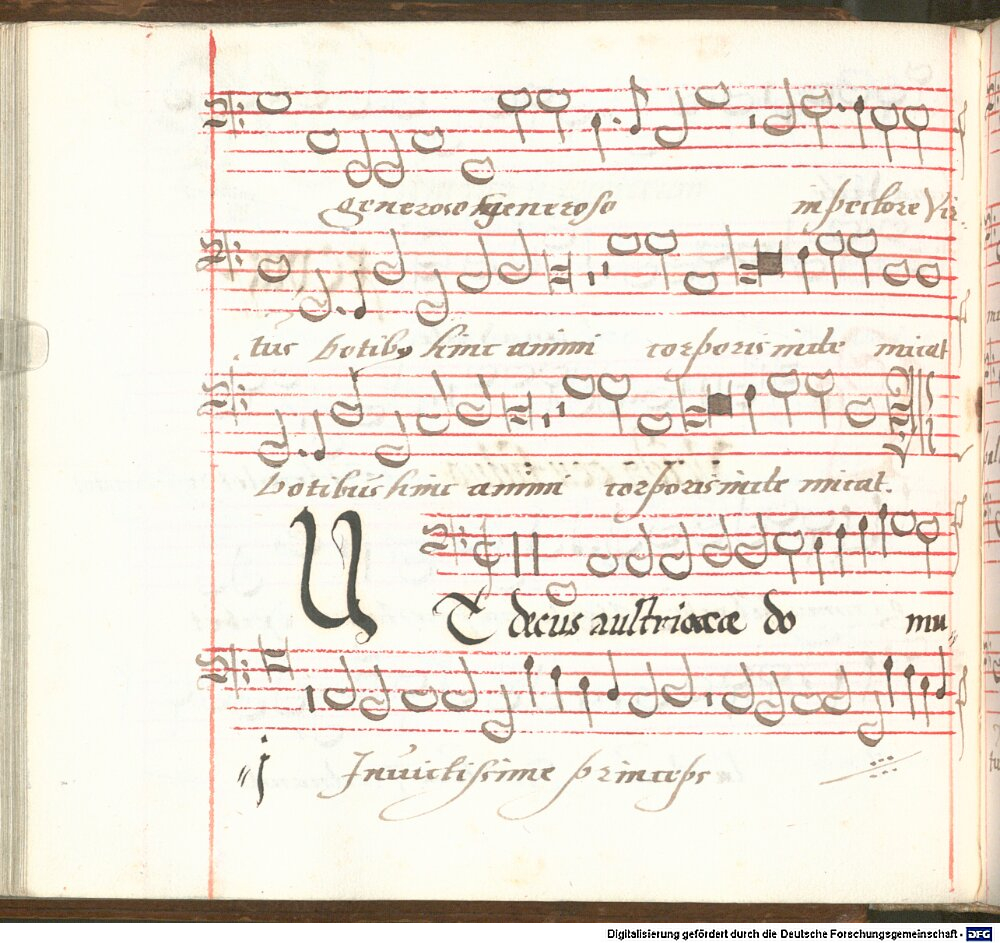 generoso generoso in pectore Vir
tus votibꝰ hinc animi corporis inde micat
votibus hinc animi corporis inde micat.
UT decus austriacæ do mu
is Invictissime princeps
Digitalisierung gefördert durch die Deutsche Forschungsgemeinschaft - DFG